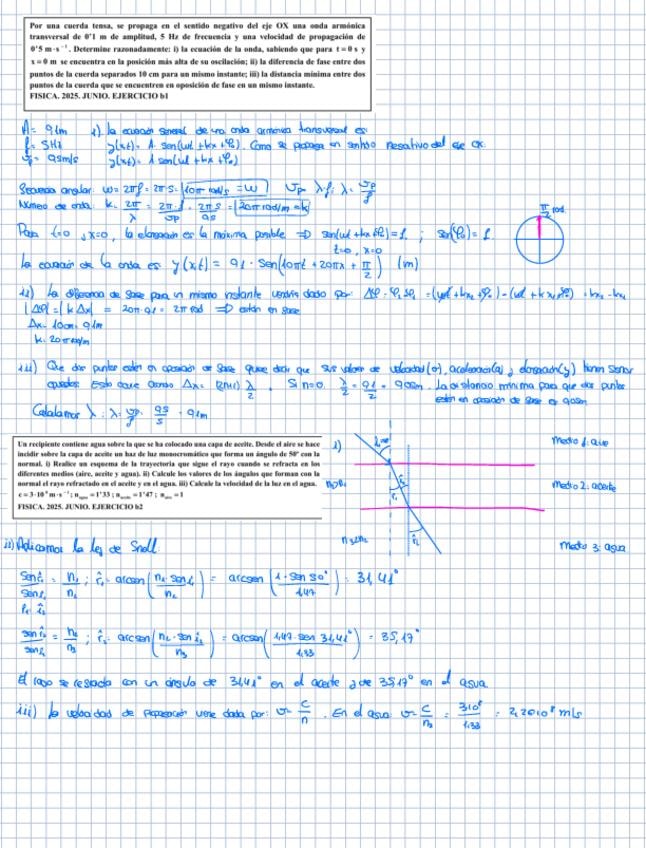 Por una cuerda tensa, se propaga en el sentido negativo del eje OX una onda armónica
transversal de 0'1 m de amplitud, 5 Hz de frecuencia y una velocidad de propagación de
0'5 m·s⁻¹. Determine razonadamente: i) la ecuación de la onda, sabiendo que para t=0 s y
x=0 m se encuentra en la posición más alta de su oscilación; ii) la diferencia de fase entre dos
puntos de la cuerda separados 10 cm para un mismo instante; iii) la distancia mínima entre dos
puntos de la cuerda que se encuentren en oposición de fase en un mismo instante.
FISICA. 2025. JUNIO. EJERCICIO b1
A= 0,1m i) la ecuación general de una onda armónica transversal es:
f= 5Hz y(x,t)= A· sen(ωt ± kx ± φ₀). Como se propaga en sentido negativo del eje OX:
vp= 0,5m/s y(x,t)= A sen(ωt + kx + φ₀)
Frecuencia angular: ω= 2πf= 2π·5= 10π rad/s =ω vp= λ·f; λ= vp/f
Número de onda: k= 2π/λ = 2π·f/vp = 2π·5/0,5 = 20π rad/m =k
π/2 rad
Para t=0 y x=0, la elongación es la máxima posible ⇒ sen(ωt + kx + φ₀)=1 ; sen(φ₀)= 1
t=0, x=0
la ecuación de la onda es: y(x,t) = 0,1 · sen(10πt + 20πx + π/2) (m)
ii) La diferencia de fase para un mismo instante vendría dado por: Δφ = φ₂-φ₁ = (ωt + kx₂ + φ₀) - (ωt + kx₁ + φ₀) = kx₂ - kx₁
|Δφ| = |k Δx| = 20π·0,1 = 2π rad ⇒ están en fase
Δx= 10cm= 0,1m
k= 20π rad/m
iii) Que dos puntos estén en oposición de fase quiere decir que sus valores de velocidad(v), aceleración(a) y elongación(y) tienen
opuestos. Esto ocurre cuando Δx= (2n+1) λ/2 . Si n=0. λ/2 = 0,1/2 = 0,05m. La distancia mínima para que dos puntos
estén en oposición de fase es 0,05m
Calculamos λ: λ= vp/f = 0,5/5 = 0,1m
Un recipiente contiene agua sobre la que se ha colocado una capa de aceite. Desde el aire se hace
incidir sobre la capa de aceite un haz de luz monocromático que forma un ángulo de 50° con la
normal. i) Realice un esquema de la trayectoria que sigue el rayo cuando se refracta en los
diferentes medios (aire, aceite y agua). ii) Calcule los valores de los ángulos que forman con la
normal el rayo refractado en el aceite y en el agua. iii) Calcule la velocidad de la luz en el agua.
c=3·10⁸ m·s⁻¹; n agua =1'33 ; n aceite =1'47 ; n aire =1
FISICA. 2025. JUNIO. EJERCICIO b2
i)
Medio 1: aire
n₂>n₁
Medio 2: aceite
n₃<n₂
Medio 3: agua
ii) Aplicamos la ley de Snell:
sen î₁/sen r̂₁ = n₂/n₁ ; r̂₁= arcsen(n₁ sen î₁/n₂) = arcsen(1·sen 50°/1,47) = 31,41°
r̂₁= î₂
sen î₂/sen r̂₂ = n₃/n₂ ; r̂₂= arcsen(n₂·sen î₂/n₃) = arcsen(1,47·sen 31,41°/1,33) = 35,17°
El rayo se refracta con un ángulo de 31,41° en el aceite y de 35,17° en el agua.
iii) la velocidad de propagación viene dada por: v= c/n . En el agua v= c/n₃ = 3·10⁸/1,33 = 2,2·10⁸ m/s